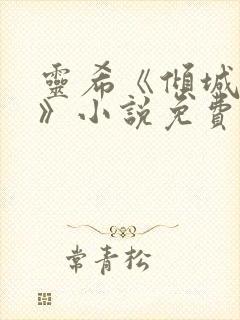 靈希《傾城
》小說免費
常青松